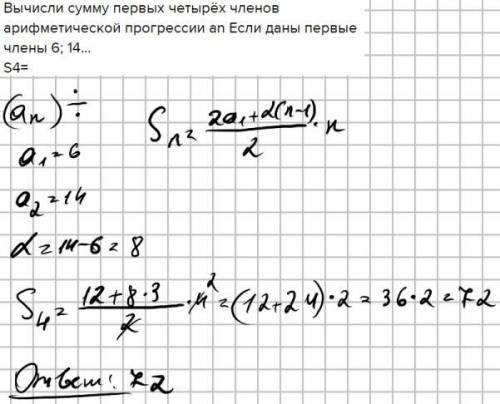 Вычисли сумму первых четырёх членов
арифметической прогрессии an Если даны первые
члены 6; 14...
S4=
(aₙ) ÷
Sₙ = (2a₁+d(n-1))/2 · n
a₁=6
a₂=14
d=14-6=8
S₄ = (12+8·3)/2 · 4² = (12+24)·2 = 36·2 = 72
Ответ: 72